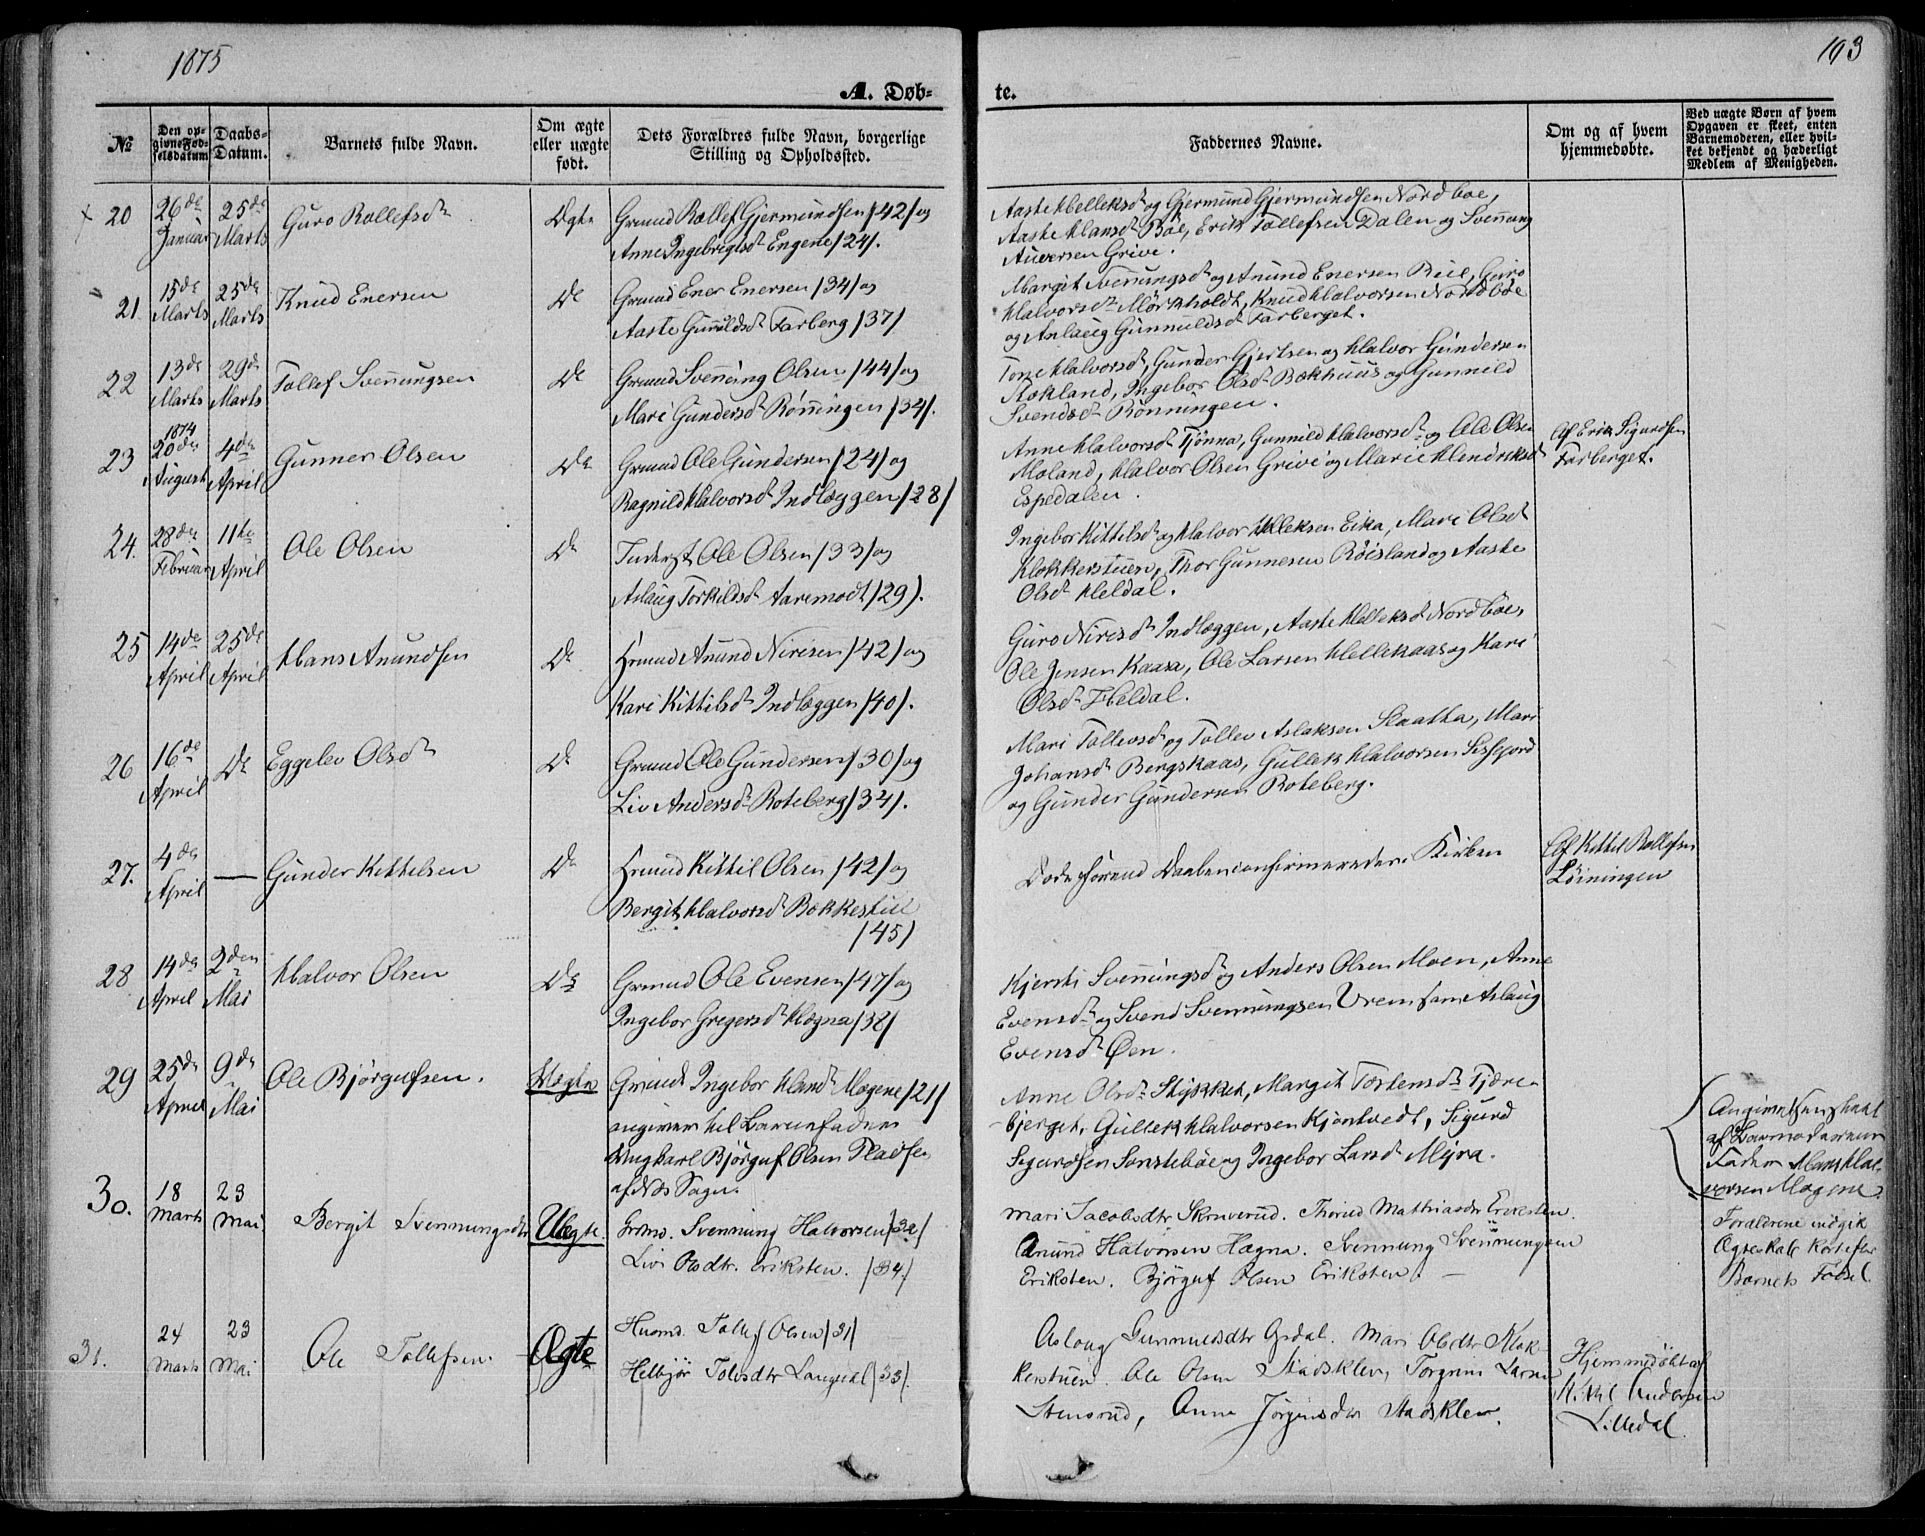 1875
193
A. Døb-
te.
№
Den op-
givne Fød-
selsdatum
Daabs-
Datum.
Barnets fulde Navn.
Om ægte
eller uægte
født.
Dets Forældres fulde Navn, borgerlige
Stilling og Opholdssted.
Faddernes Navne.
Om og af hvem
hjemmedøbte.
Ved uægte Børn af hvem
Opgaven er skeet, enten
Barnemoderen, eller hvil-
ket bekjendt og hæderligt
Medlem af Menigheden.
20
26de
Januar
25de
Marts
Guro Rollefsdt
Ægte
Grmnd Rollef Gjermundsen /42/ og
Anne Ingebrigtsdt Engene /24/.
Aaste Helleksdt og Gjermund Gjermundsen Nordboe,
Aaste Hansdt Böe, Erik Tollefsen Dalen og Svennung
Auversen Grive.
21
15de
Marts
25de
Marts
Knud Enersen
Do
Grmnd Ener Enersen /34/ og
Aaste Gunuldsdt Farberg /37/
Margit Svenungsdt og Anund Enersen Boie, Guro
Halvorsdt Mörkholdt, Knud Halvorsen Nordböe
og Anlaug Gunnuldsdt Farberget.
22
13de
Marts
29de
Marts
Tollef Svennungsen
Do
Grmnd Svennung Olsen /44/ og
Mari Gundersdt Rönningen /34/.
Tone Halvorsdt, Gunder Gjertsen og Halvor Gundersen
Rokland, Ingebor Olsdt Bækhuus og Gunnild
Svendsdt Rönningen.
23
1874
20de
August
4de
April
Gunner Olsen
Do
Grmnd Ole Gundersen /24/ og
Ragnild Halvorsdt Indlæggen /28/
Anne Halvorsdt Tjönna, Gunnild Halvorsdt og Ole Olsen
Moland, Halvor Olsen Grive og Marie Hendriksdt
Espedalen.
Af Erik Sigurdsen
Farberget.
24.
28de
Februar
11te
April
Ole Olsen
Do
Inderst Ole Olsen /33/ og
Aslaug Torkildsdt Aaremodt /29).
Ingebor Kittilsdt og Halvor Helleksen Eika, Mari Olsdt
Klokkerstuen, Thor Gunnesen Röisland og Aaste
Olsdt Heldal.
25
14de
April
25de
April
Hans Anundsen
Do
Hrmnd Anund Nirisen /42/ og
Kari Kittilsdt Indlæggen /40/.
Guro Nirisdt Indlæggen, Aaste Helleksdt Nordböe,
Ole Jensen Kaasa, Ole Larsen Hellekaas og Kari
Olsdt Heldal.
26
16de
April
Do
Eggelev Olsdt
Do
Grmnd Ole Gundersen /30/ og
Liv Andersdt Roteberg /34/.
Mari Tollevsdt og Tollev Aslaksen Slaatha, Mari
Johansdt Bergskaas, Gullek Halvorsen Sissejord
og Gunder Gundersen Roteberg.
27.
4de
April
—
Gunder Kittelsen
Do
Hrmnd Kittil Olsen /42/ og
Bergit Halvorsdt Bækkestul
/45)
Døde forend Daaben confirmeredes i Kirken
Af Kittil Rollefsen
Löiningen
28
14de
April
2den
Mai
Halvor Olsen
Do
Grmnd Ole Evensen /47/ og
Ingebor Gregersdt Hægna /38/
Kjersti Svennungsdt og Anders Olsen Moen, Anne
Evensdt og Svend Svennungsen Vrem samt Aslaug
Evensdt Øen.
29
25de
April
9de
Mai
Ole Björgufsen.
Uægte
Grmndt Ingebor Hansdt Mogene /21/
angiven til Barnefader
Ungkarl Björguf Olsen Pladsen
af Næs Sogn.
Anne Olsdt Stykket, Margit Torstensdt Tjære-
bjerget, Gullek Halvorsen Kjöntvedt, Sigurd
Sigurdsen Sansteböe og Ingebor Larsdt Myra.
Angivelsen skeet
af Barnemoderens
Fader Hans Hal-
vorsen Mogene.
30.
18
Marts
23
Mai
Bergit Svennungsdtr
Uægte.
Grmd. Svennung Halvorsen /32/
Livi Olsdtr. Eriksten. /34/
Mari Jacobsdtr Skruverud. Thorid Mathiasdr Eriksten.
Anund Halvorsen Hægna. Svennung Svennungsen
Eriksten. Björguf Olsen Eriksten. —
Foraldrene indgik
Ægteskab kort efter
Barnets Födsel.
31.
24
Marts
23
Mai
Ole Tollefsen
Ægte
Husmd. Tollef Olsen /31/
Helbjör Tolvsdtr Langedl /33/.
Aslaug Gunnuldsdtr Opdal. Mari Olsdtr Klok-
kerstuen. Ole Olsen Stadsklev, Torgrim Larsen
Stensrud, Anne Jörgensdtr Stadsklev.
Hjemmedöbt af
Kittil Andersen
Lilledal.